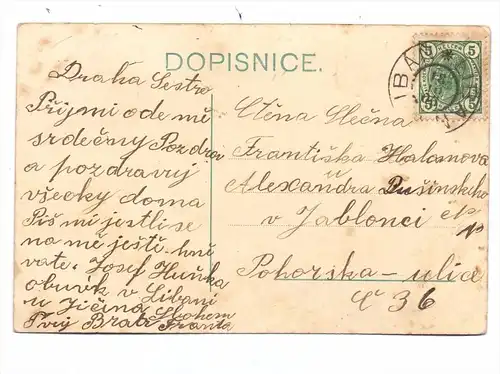 DOPISNICE.
Drahá Sestro
Přijmi ode mě
srdečný Pozdrav
a pozdravuj
všecky doma
Piš mi jestli se
na mě ještě hně
vate. Josef Huňka
obuvk v Libani
u Jičína Sbohem
Tvůj Bratr Franta
Ctěna Slečna
Františka Halamova
u
Alexandra Dušinskeho
v Jablonci n/N
Pohorska-ulice
č 36
5 HELLER 5
5 5
LIBAŇ